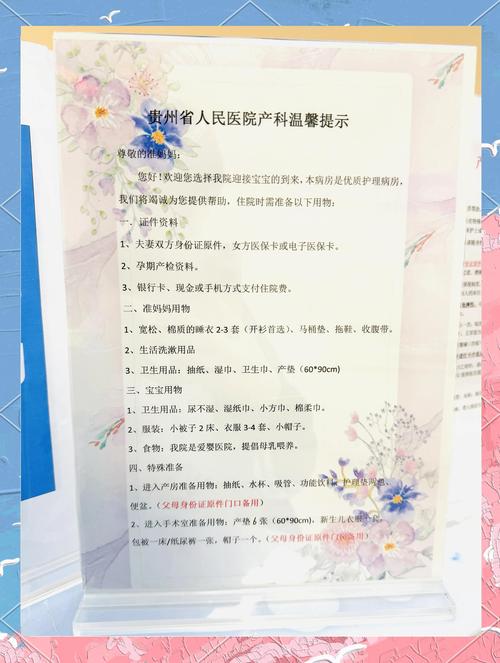 贵州省人民医院产科温馨提示
尊敬的准妈妈:
您好!欢迎您选择我院迎接宝宝的到来,本病房是优质护理病房,
我们将竭诚为您提供帮助,住院时需准备以下用物:
一、证件资料
1、夫妻双方身份证原件,女方医保卡或电子医保卡。
2、孕期产检资料。
3、银行卡、现金或手机方式支付住院费。
二、准妈妈用物
1、宽松、棉质的睡衣 2-3 套(开衫首选)、马桶垫、拖鞋、收腹带。
2、生活洗漱用品
3、卫生用品:抽纸、湿巾、卫生巾、产垫(60*90cm)
三、宝宝用物
1、卫生用品:尿不湿、湿纸巾、小方巾、棉柔巾。
2、服装:小被子 2 床、衣服 3-4 套、小帽子。
3、食物:我院是爱婴医院,提倡母乳喂养。
四、特殊准备
1、进入产房准备用物:抽纸、水杯、吸管、功能饮料、护理垫两包、
便盆。(父母身份证原件门口备用)
2、进入手术室准备用物:产垫 6 张(60*90cm),新生儿衣服一套,
包被一床/纸尿裤一张,帽子一个。(父母身份证原件门口备用)